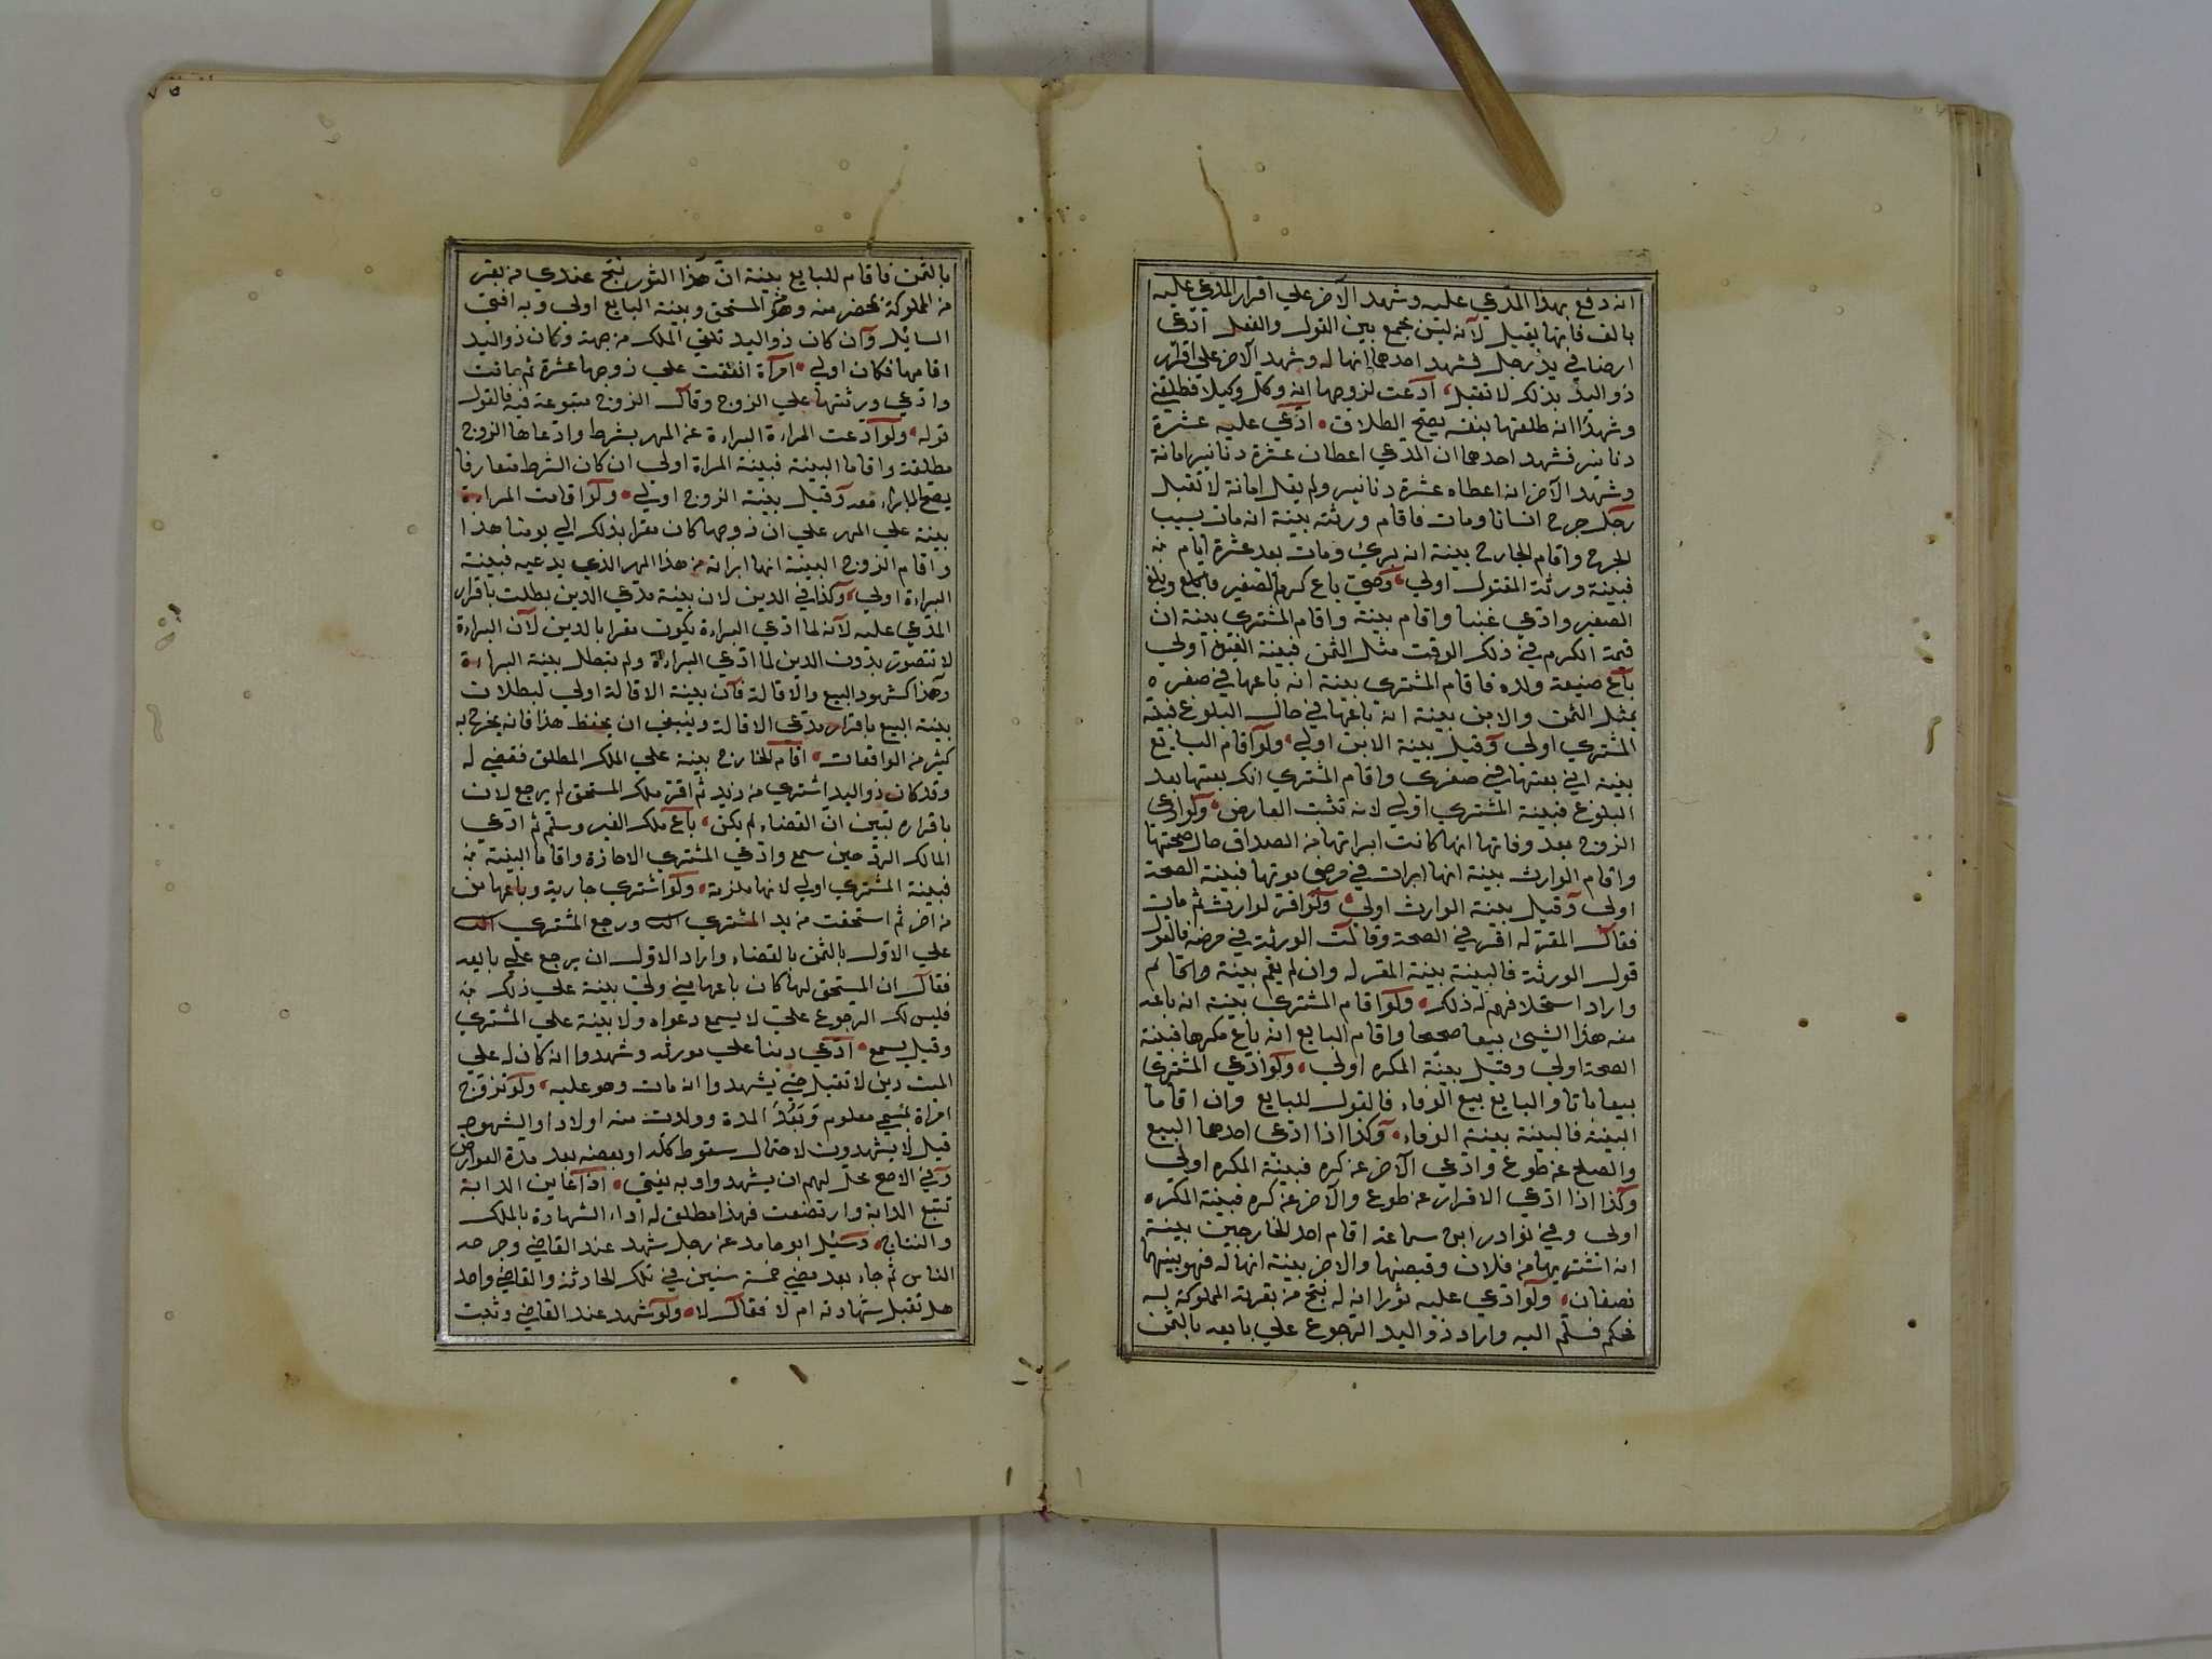 انه دفع بهذا المدعي عليه وشهد الآخر علي اقرار المدعي عليه
بالف فانها يقبل لانه ليس بجمع بين القول والفعل ادعي
ارضا في يد رجل فشهد احدهما انها له وشهد الآخر علي اقرار
ذو اليد بذلك لا تقبل ادعت لزوجها انه وكل وكيلا فطلقني
وشهدا انه طلقها بنفسه يصح الطلاق ادعي عليه عشرة
دنانير فشهد احدهما ان المدعي اعطاه عشرة دنانير امانة
وشهد الآخر انه اعطاه عشرة دنانير ولم يقل امانة لا تقبل
رجل جرح انسانا ومات فاقام ورثته بينة انه مات بسبب
الجرح واقام الجارح بينة انه بريء ومات بعد عشرة ايام
فبينة ورثة المقتول اولي وصي باع كرم الصغير وبلغ
الصغير وادعي غبنا واقام بينة واقام المشتري بينة ان
قيمة الكرم في ذلك الوقت مثل الثمن فبينة الغبن اولي
باع ضيعة ولده فاقام المشتري بينة انه باعها في صغره
بمثل الثمن والابن بينة انه باعها في حال البلوغ فبينة
المشتري اولي وقيل بينة الابن اولي ولو اقام البايع
بينة اني بعتها في صغري واقام المشتري انك بعتها بعد
البلوغ فبينة المشتري اولي لانه تثبت العارض ولو ادعي
الزوج بعد وفاتها انها كانت ابراتها من الصداق حال صحتها
واقام الوارث بينة انها ابرات في مرض موتها فبينة الصحة
اولي وقيل بينة الوارث اولي ولو اقر لوارث ثم مات
فقال المقر له اقر في الصحة وقالت الورثة في مرضه فالقول
قول الورثة فالبينة بينة المقر له وان لم يقم بينة
واراد استحلافهم له ذلك ولو اقام المشتري بينة انه باعه
منه هذا الشيء بيعا صحيحا واقام البايع انه باع مكرها فبينة
الصحة اولي وقيل بينة المكره اولي ولو ادعي المشتري
بيعا باتا والبايع بيع الوفاء فالقول للبايع وان اقاما
البينة فالبينة بينة الوفاء وكذا اذا ادعي احدهما البيع
والصلح عن طوع وادعي الآخر عن كره فبينة المكره اولي
وكذا اذا ادعي الاقرار عن طوع والآخر عن كره فبينة المكره
اولي وفي نوادر ابن سماعة اقام احد الخارجين بينة
انه اشتريها من فلان وقبضها والاخر بينة انها له فهو بينهما
نصفان ولو ادعي عليه ثورا انه له نتج من بقرته المملوكة له
فحكم فسلم اليه واراد ذو اليد الرجوع علي بايعه بالثمن
بالثمن فاقام للبايع بينة ان هذا الثور نتج عندي من بقر
من المملوكة بمحضر منه ومن المستحق وبينة البايع اولي وبه افتي
السائل وان كان ذو اليد تلقي الملك من جهة وكان ذو اليد
اقامها فكان اولي امرأة انفقت علي زوجها عشرة ثم ماتت
وادعي ورثتها علي الزوج وقال الزوج متبوعة فيه فالقول
قوله ولو ادعت المراءة البراءة عن المهر بشرط وادعاها الزوج
مطلقة واقاما البينة فبينة المراة اولي ان كان الشرط متعارفا
يصح الابراء معه وقيل بينة الزوج اولي ولو اقامت المراءة
بينة علي المهر علي ان زوجها كان مقرا بذلك الي يومنا هذا
واقام الزوج البينة انها ابراته من هذا المهر الذي يدعيه فبينة
البراءة اولي وكذا في الدين لان بينة مدعي الدين بطلت باقرار
المدعي عليه لانه لما ادعي البراءة يكون مقرا بالدين لان البراءة
لا تتصور بدون الدين لما ادعي البراءة ولم تبطل بينة البراءة
وهذا كشهود البيع والاقالة فان بينة الاقالة اولي لبطلان
بينة البيع باقرار مدعي الاقالة وينبغي ان يحفظ هذا فانه يخرج به
كثير من الواقعات اقام الخارج بينة علي الملك المطلق فقضي له
وقد كان ذو اليد اشتري من زيد ثم اقر بملك المستحق لم يرجع لان
باقراره تبين ان القضاء لم يكن باع ملك الغير وسلم ثم ادعي
المالك الرد حين سمع وادعي المشتري الاجازة واقاما البينة
فبينة المشتري اولي لانها ملزمة ولو اشتري جارية وباعها من
من آخر ثم استحقت من يد المشتري ورجع المشتري
علي الاول بالثمن بالقضاء واراد الاول ان يرجع علي بايعه
فقال ان المستحق لها كان باعها مني ولي بينة علي ذلك
فليس لك الرجوع علي لا يسمع دعواه ولا بينة علي المشتري
وقيل يسمع ادعي دينا علي مورثه وشهدوا انه كان له علي
الميت دين لا تقبل حتي يشهدوا انه مات وهو عليه ولو تزوج
امراة بمسمي معلوم وبعد المدة وولدت منه اولادا والشهود
قيل لا يشهدون لاحتمال سقوط كله او بعضه بعد مدة العوارض
وفي الاصح يحل لهم ان يشهدوا وبه يفتي اذا عاين الدابة
تتبع الدابة وارتضعت فهذا مطلق له اداء الشهادة بالملك
والنتاج وسئل ابو حامد عن رجل شهد عند القاضي وجرحه
الناس ثم جاء بعد مضي خمسة سنين في تلك الحادثة والقاضي واحد
هل تقبل شهادته ام لا فقال لا ولو شهد عند القاضي وثبت